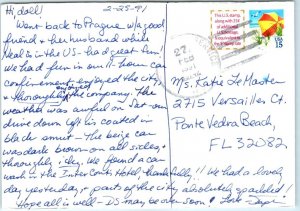 Hi doll! 2-25-91
Went back to Prague w/a good
friend & her husband while
Neal is in the US - had great fun!
We had fun in our 11-hour car
confinement, enjoyed the city,
& thoroughly enjoyed the company. The
weather was awful on Sat - our
drive down left his coated in
black smut - The beige car
was dark brown on all sides &
thoroughly icky. We found a car
wash in the InterCont. Hotel, thankfully!! We had a lovely
day yesterday & parts of the city absolutely sparkled!
Hope all is well - DS may be over soon! Love -
This U.S. stamp,
along with 25¢
of additional
U.S. postage,
is equivalent to
the 'F' stamp
rate
USA
15
27
FEB
Ms. Katie LeMaster
2715 Versailles Ct.
Ponte Vedra Beach,
FL 32082